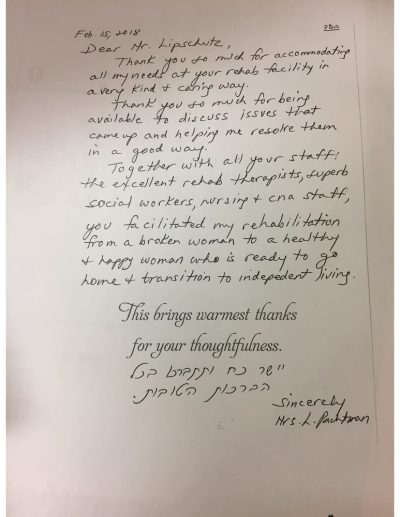 Feb. 15, 2018
Dear Mr. Lipschutz,
Thank you so much for accommodating
all my needs at your rehab facility in
a very kind & caring way.
Thank you so much for being
available to discuss issves that
came up and helping me resolve them
in a good way.
Together with all your staff,
the excellent rehab therapists, superb
social workers, nursing & cna staff,
you facilitated my rehabilitation
from a broken woman to a healthy
& happy woman who is ready to go
home & transition to indepedent living.
This brings warmest thanks
for your thoughtfulness.
יישר כח ותתברכו בכל
הברכות הטובות.
Sincerely
Mrs. L.